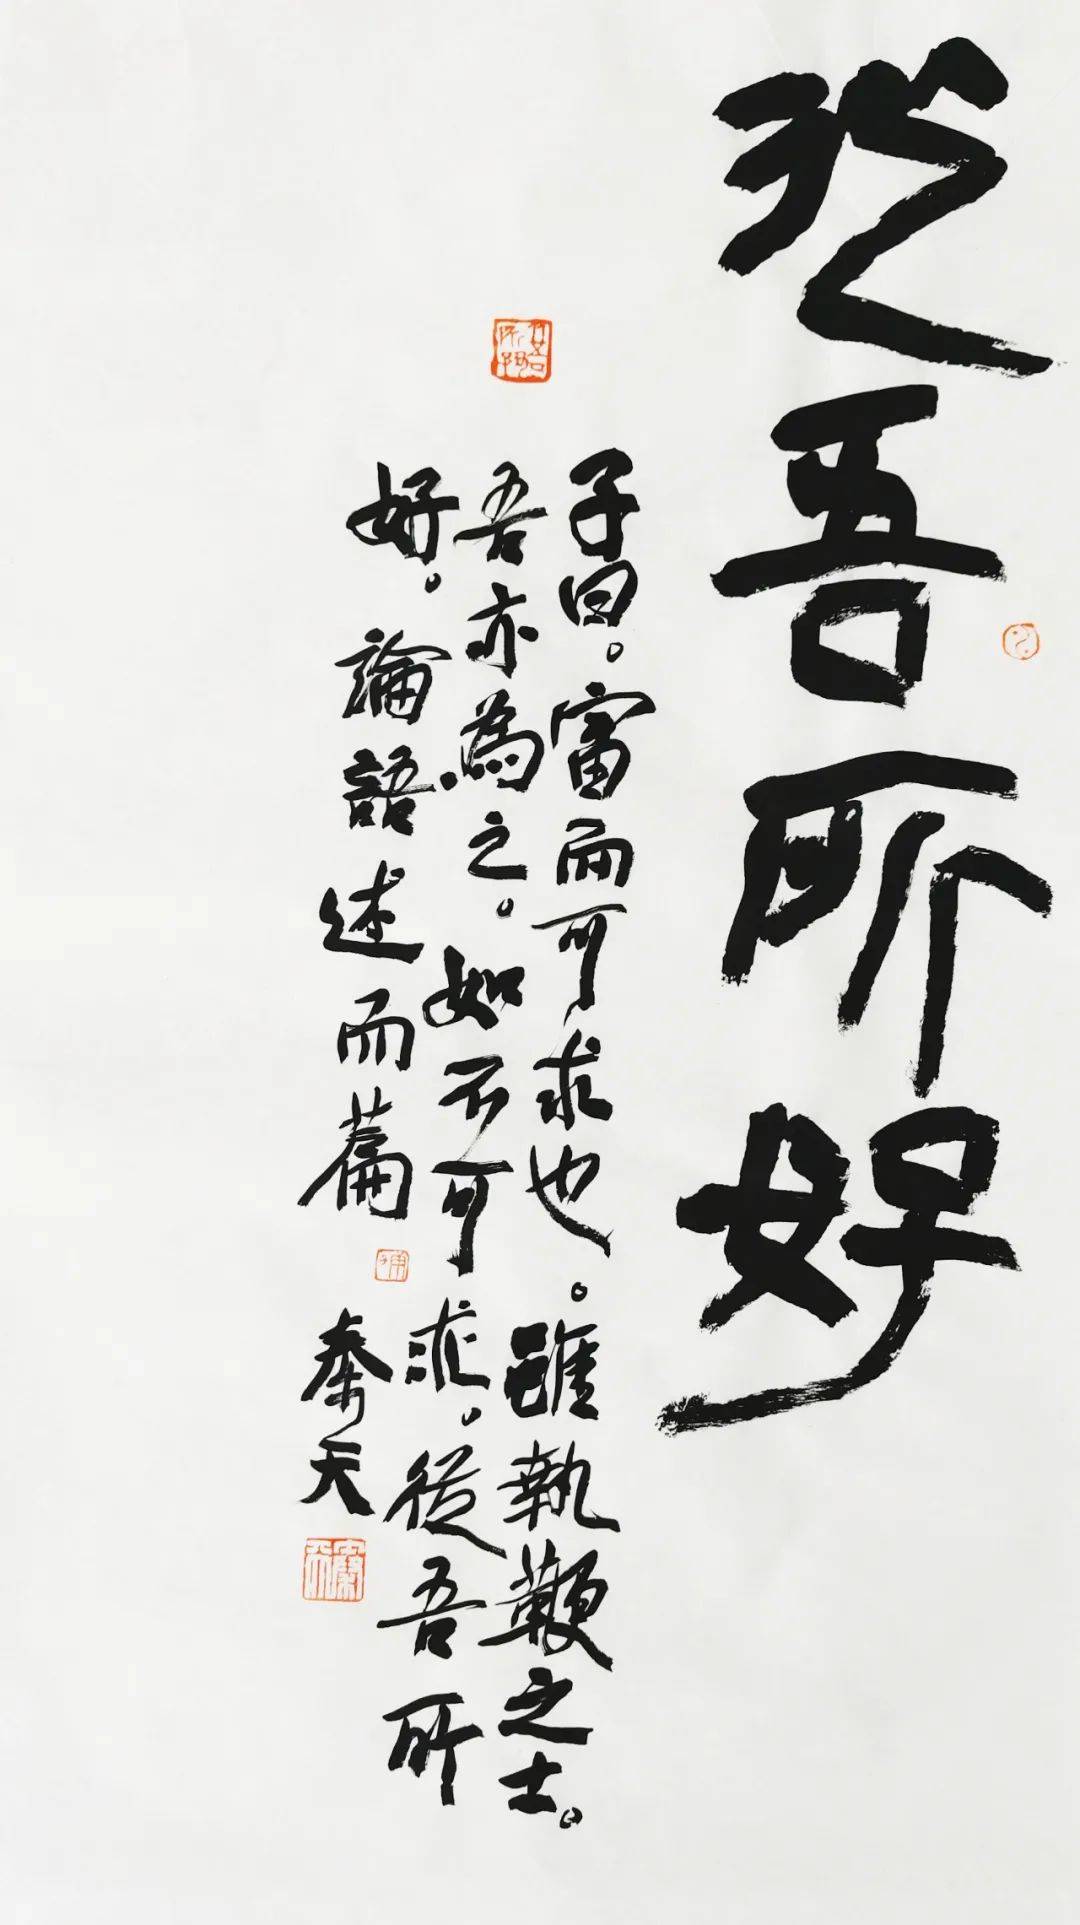 從吾所好
子曰。富而可求也。雖執鞭之士。
吾亦為之。如不可求。從吾所
好。論語述而篇
秦天